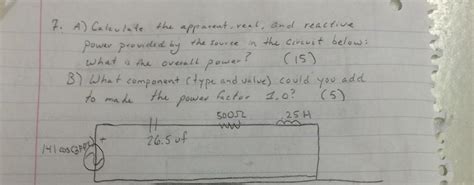 7. A) Calculate the apparent, real, and reactive
power provided by the source in the circuit below:
What is the overall power? (15)
B) What component (type and value) could you add
to make the power factor 1.0? (5)
500Ω .25H
26.5 uf
+
141 cos(